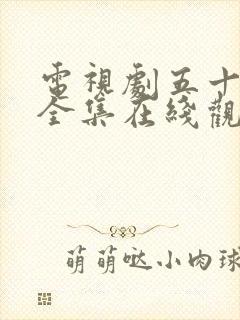 電視劇五十
全集在綫觀
萌萌哒小肉球